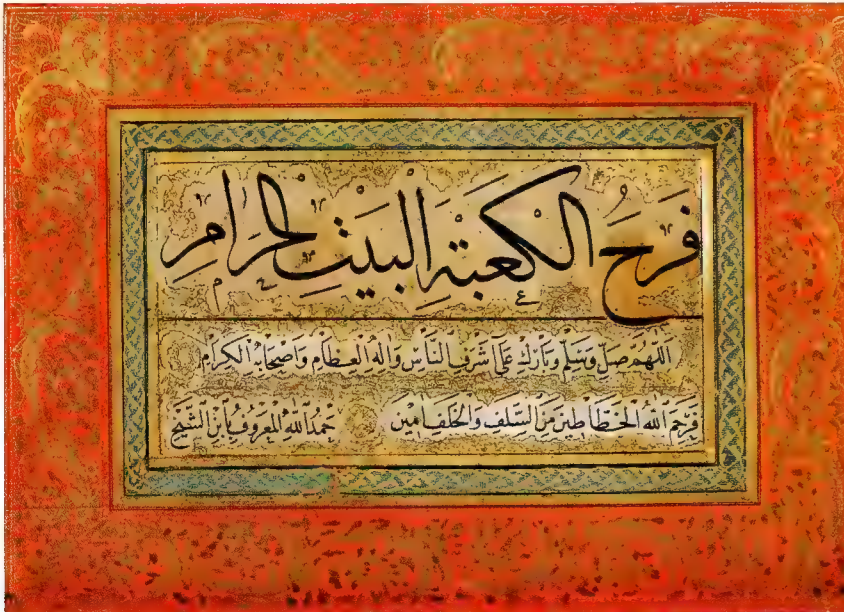 فَرَحُ الكَعْبَةِ البَيْتِ الحَرَامِ
اَللّٰهُمَّ صَلِّ وَسَلِّمْ وَبَارِكْ عَلَى اَشْرَفِ النَّاسِ وَاٰلِهِ العِظَامِ وَاَصْحَابِهِ الكِرَامِ
فَرَحِمَ اللّٰهُ الخَطَّاطِينَ مِنَ السَّلَفِ وَالخَلَفِ اٰمِين حَمْدُ اللّٰهِ المَعْرُوفُ بِابْنِ الشَّيْخِ